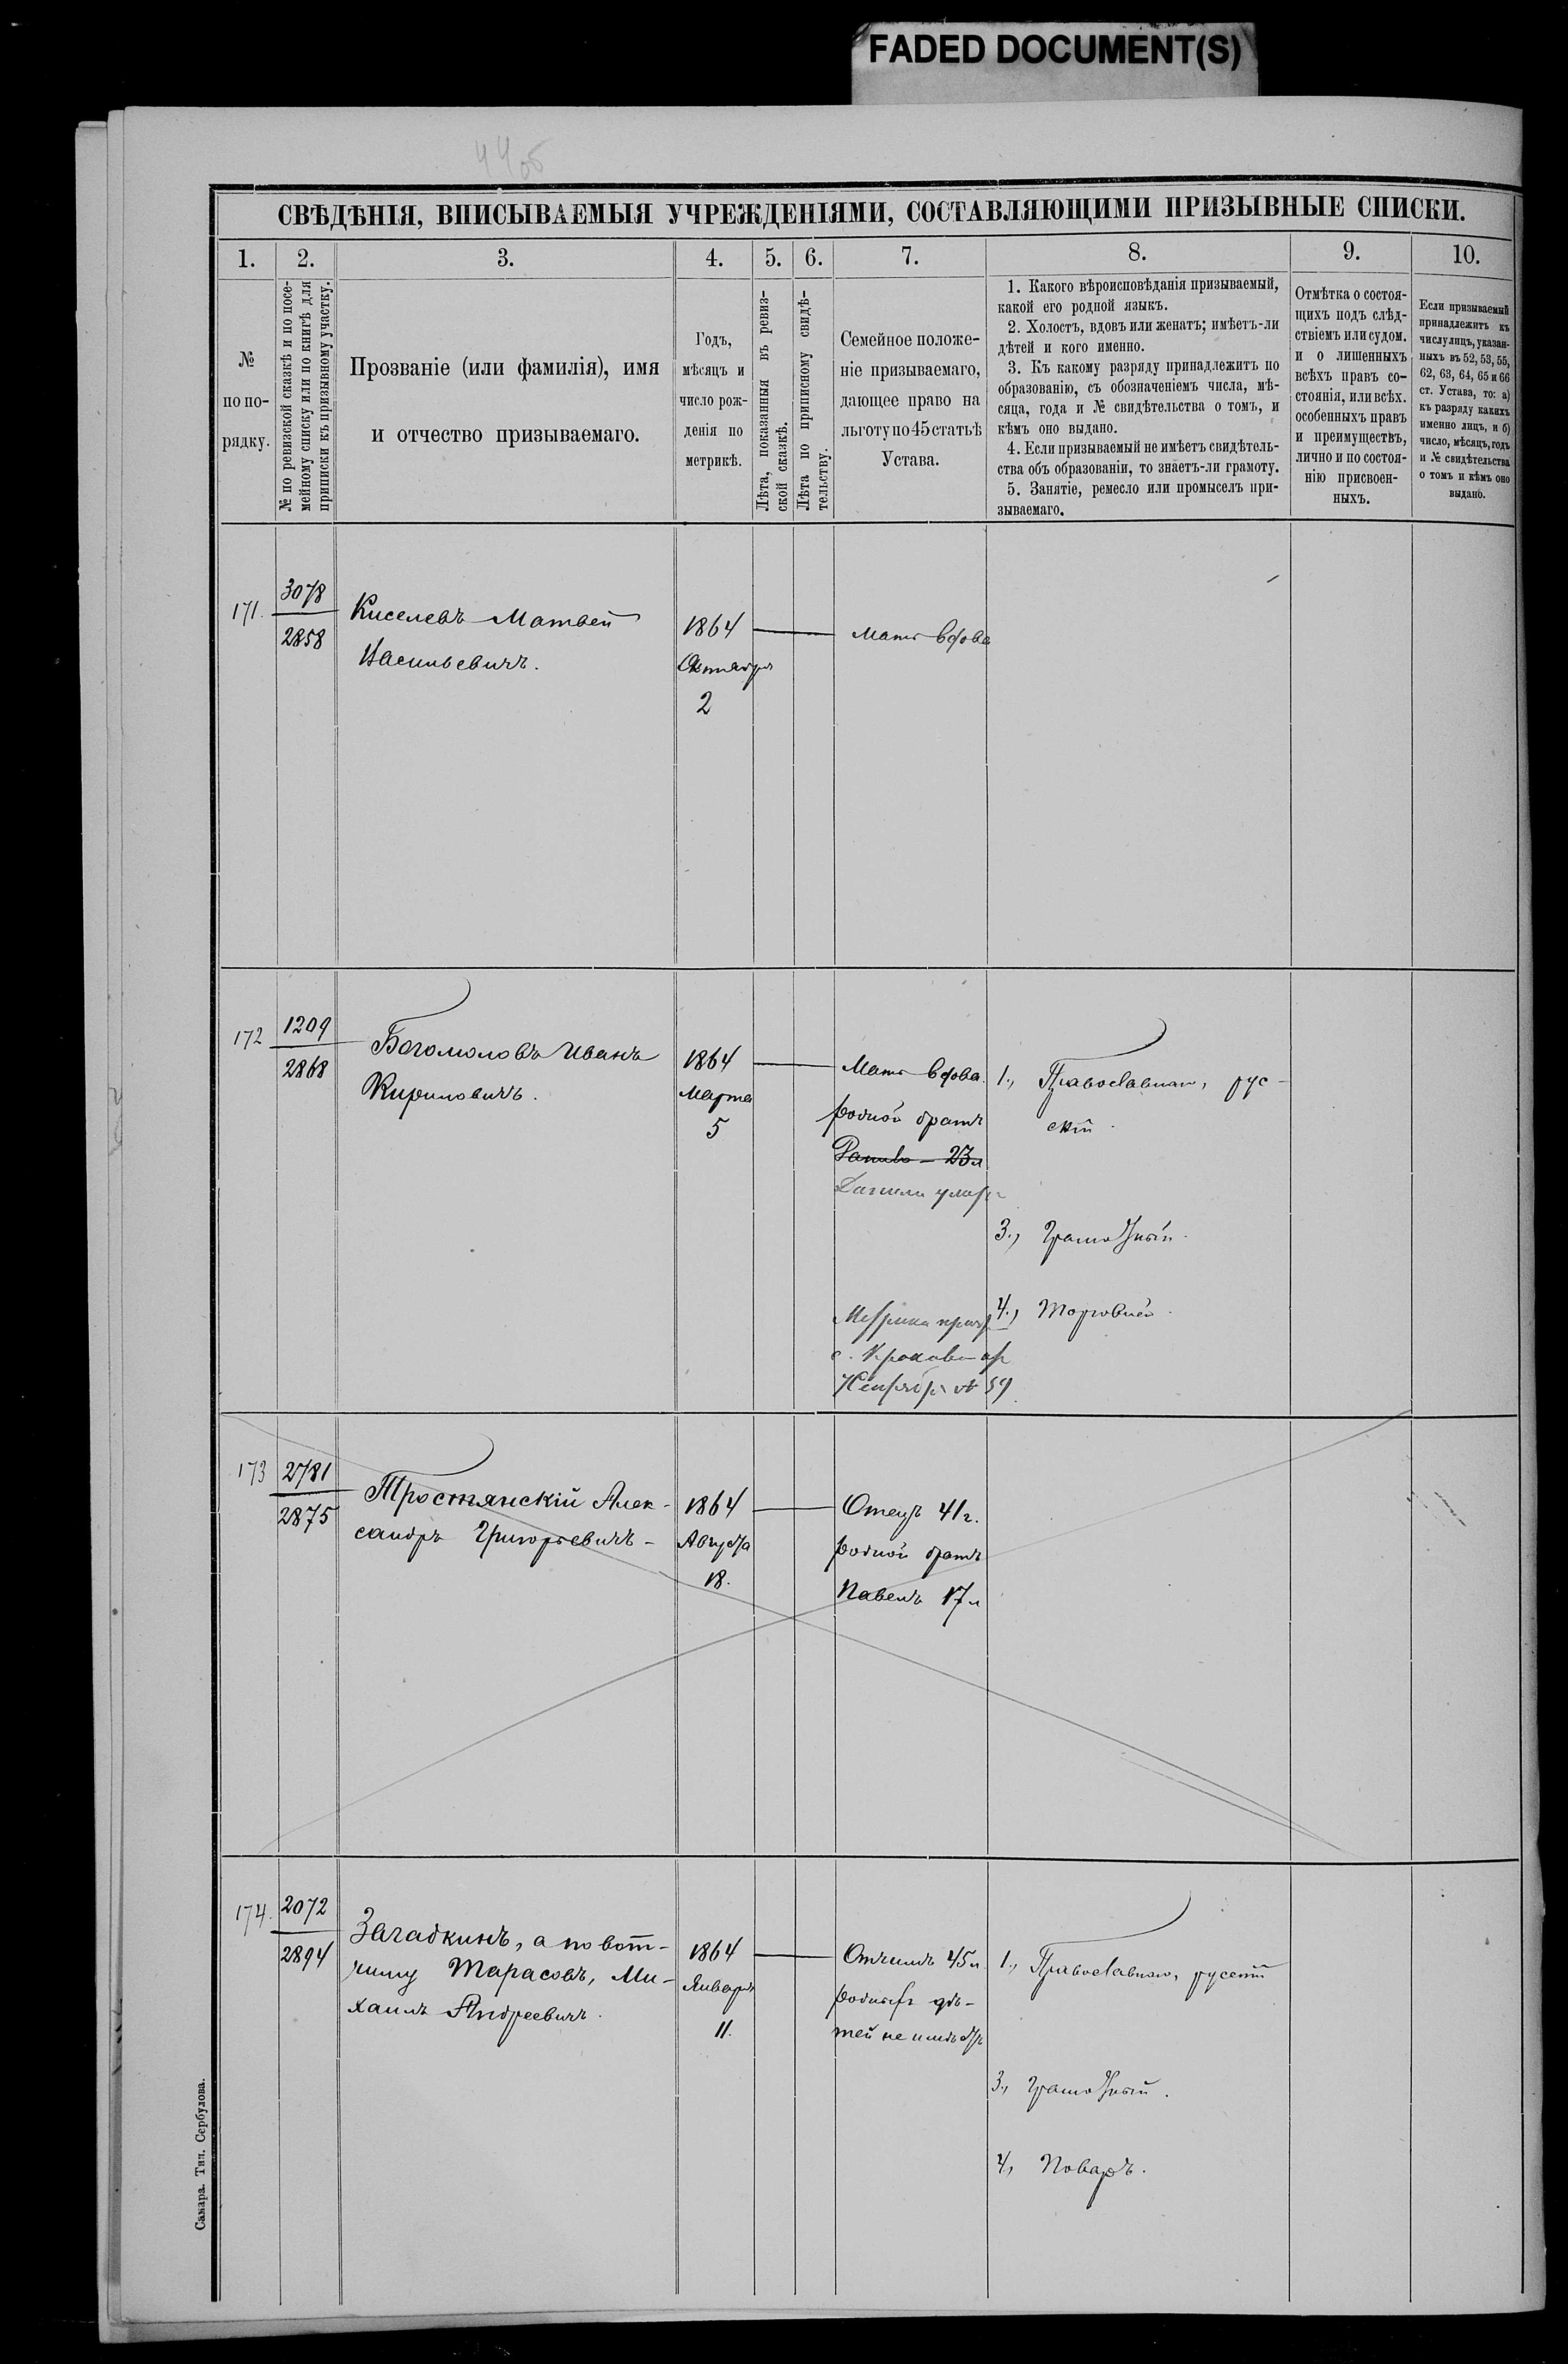 FADED DOCUMENT(S)
44об
СВѢДѢНІЯ, ВПИСЫВАЕМЫЯ УЧРЕЖДЕНІЯМИ, СОСТАВЛЯЮЩИМИ ПРИЗЫВНЫЕ СПИСКИ.
1.
2.
3.
4.
5.
6.
7.
8.
9.
10.
№
по по-
рядку.
№ по ревизской сказкѣ и по посе-
мейному списку или по книгѣ для
приписки къ призывному участку.
Прозваніе (или фамилія), имя
и отчество призываемаго.
Годъ,
мѣсяцъ и
число рож-
денія по
метрикѣ.
Лѣта, показанныя въ ревиз-
ской сказкѣ.
Лѣта по приписному свидѣ-
тельству.
Семейное положе-
ніе призываемаго,
дающее право на
льготу по 45 статьѣ
Устава.
1. Какого вѣроисповѣданія призываемый,
какой его родной языкъ.
2. Холостъ, вдовъ или женатъ; имѣетъ-ли
дѣтей и кого именно.
3. Къ какому разряду принадлежитъ по
образованію, съ обозначеніемъ числа, мѣ-
сяца, года и № свидѣтельства о томъ, и
кѣмъ оно выдано.
4. Если призываемый не имѣетъ свидѣтель-
ства объ образованіи, то знаетъ-ли грамоту.
5. Занятіе, ремесло или промыселъ при-
зываемаго.
Отмѣтка о состоя-
щихъ подъ слѣд-
ствіемъ или судом.
и о лишенныхъ
всѣхъ правъ со-
стоянія, или всѣх.
особенныхъ правъ
и преимуществъ,
лично и по состоя-
нію присвоен-
ныхъ.
Если призываемый
принадлежитъ къ
числу лицъ, указан-
ныхъ въ 52, 53, 55,
62, 63, 64, 65 и 66
ст. Устава, то: а)
къ разряду какихъ
именно лицъ, и б)
число, мѣсяцъ, годъ
и № свидѣтельства
о томъ и кѣмъ оно
выдано.
171.
3078
2858
Киселевъ Матвей
Васильевичъ.
1864
Октября
2
Мать вдова
172
1209
2868
Богомоловъ Иванъ
Кириловичъ.
1864
Марта
5
Мать вдова.
родной братъ
23 л
умеръ
Метрика
с.
№ 59
1., Православнаго, рус-
скій.
3., Грамотный.
4., Торговлей.
173
2781
2875
Тростянскій Алек-
сандръ Григорьевичъ -
1864
Августа
18.
Отецъ 41 г.
родной братъ
Павелъ 17 л
174.
2072
2894
Загадкинъ, а по вот-
чиму Тарасовъ, Ми-
хаилъ Андреевичъ.
1864
Января
11.
Отчимъ 45 л.
родныхъ дѣ-
тей не имѣетъ
1., Православнаго, русскій
3., Грамотный.
4, Поваръ.
Самара. Тип. Сербузова.